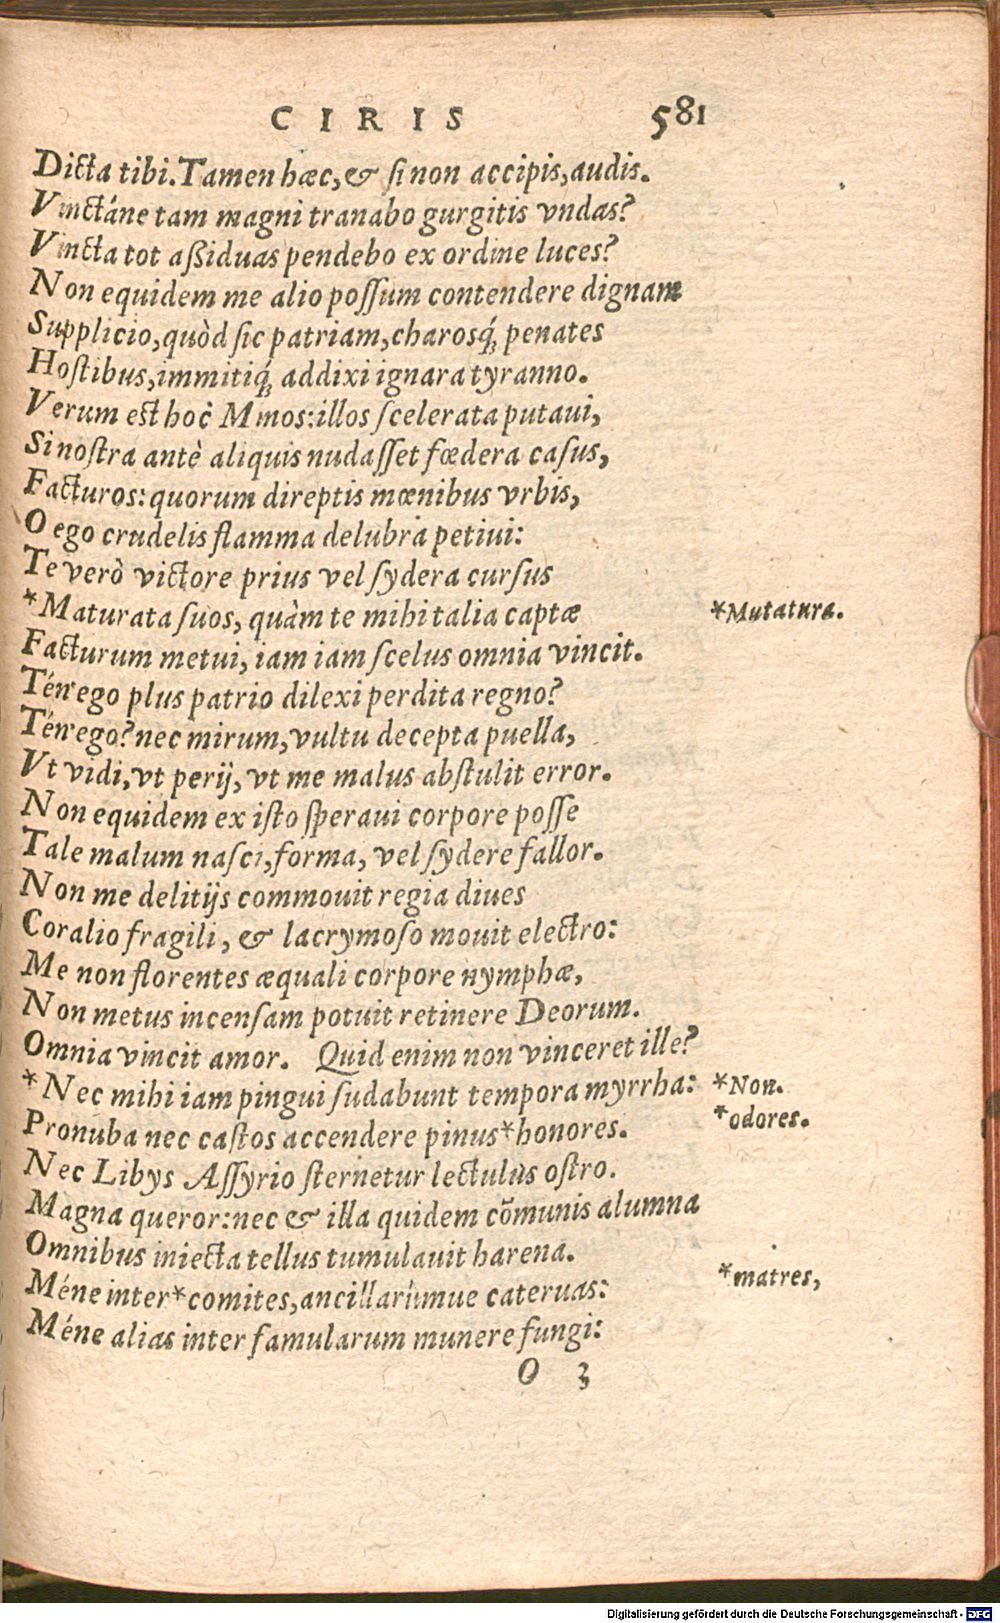 CIRIS 581
Dicta tibi. Tamen hæc, & si non accipis, audis.
Vinctáne tam magni tranabo gurgitis vndas?
Vincta tot aßiduas pendebo ex ordine luces?
Non equidem me alio possum contendere dignam
Supplicio, quòd sic patriam, charosq́; penates
Hostibus, immitiq́; addixi ignara tyranno.
Verum est hoc Minos: illos scelerata putaui,
Si nostra antè aliquis nudasset fœdera casus,
Facturos: quorum direptis mœnibus vrbis,
O ego crudelis flamma delubra petiui:
Te verò victore prius vel sydera cursus
*Maturata suos, quàm te mihi talia captæ *Mutatura.
Facturum metui, iam iam scelus omnia vincit.
Tén'ego plus patrio dilexi perdita regno?
Tén'ego? nec mirum, vultu decepta puella,
Vt vidi, vt perij, vt me malus abstulit error.
Non equidem ex isto speraui corpore posse
Tale malum nasci, forma, vel sydere fallor.
Non me delitijs commouit regia diues
Coralio fragili, & lacrymoso mouit electro:
Me non florentes æquali corpore nymphæ,
Non metus incensam potuit retinere Deorum.
Omnia vincit amor. Quid enim non vinceret ille?
*Nec mihi iam pingui sudabunt tempora myrrha: *Non.
Pronuba nec castos accendere pinus*honores. *odores.
Nec Libys Assyrio sternetur lectulus ostro.
Magna queror: nec & illa quidem cõmunis alumna
Omnibus iniecta tellus tumulauit harena.
Méne inter*comites, ancillarúmue cateruas: *matres,
Méne alias inter famularum munere fungi:
O 3
Digitalisierung gefördert durch die Deutsche Forschungsgemeinschaft - DFG